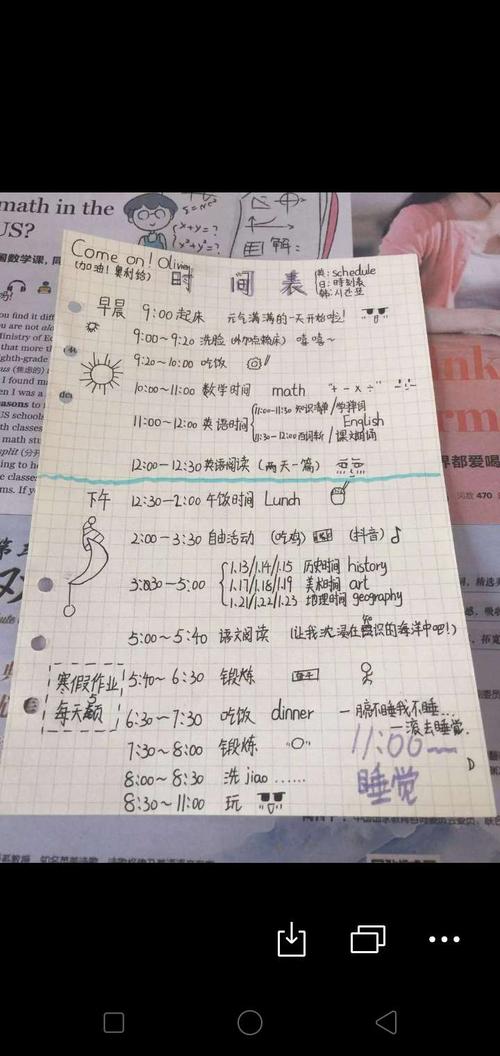 math in the
US?
Come on! Olivia
(加油！奥利给)
时 间 表
英: schedule
日: 時刻表
韩: 시간표
早晨 9:00起床 元气满满的一天开始啦!
9:00~9:20 洗脸 嘻嘻~
9:20~10:00 吃饭
10:00~11:00 数学时间 math "+ - × ÷"
11:00~12:00 英语时间
11:00~11:30 知识清单/学弹词
English
11:30~12:00
12:00~12:30 英语阅读 (两天一篇)
下午 12:30~2:00 午饭时间 Lunch
2:00~3:30 自由活动 (吃鸡) (抖音)
3:30~5:00
1.13/1.14/1.15 历史时间 history
1.17/1.18/1.19 美术时间 art
1.21/1.22/1.23 地理时间 geography
5:00~5:40 语文阅读 (让我沉浸在知识的海洋中吧!)
寒假作业
每天5页
5:40~6:30 锻炼
6:30~7:30 吃饭 dinner
一脑不睡我不睡...
一滚去睡觉.
7:30~8:00 锻炼
8:00~8:30 洗jiao ......
8:30~11:00 玩
11:00~
睡觉